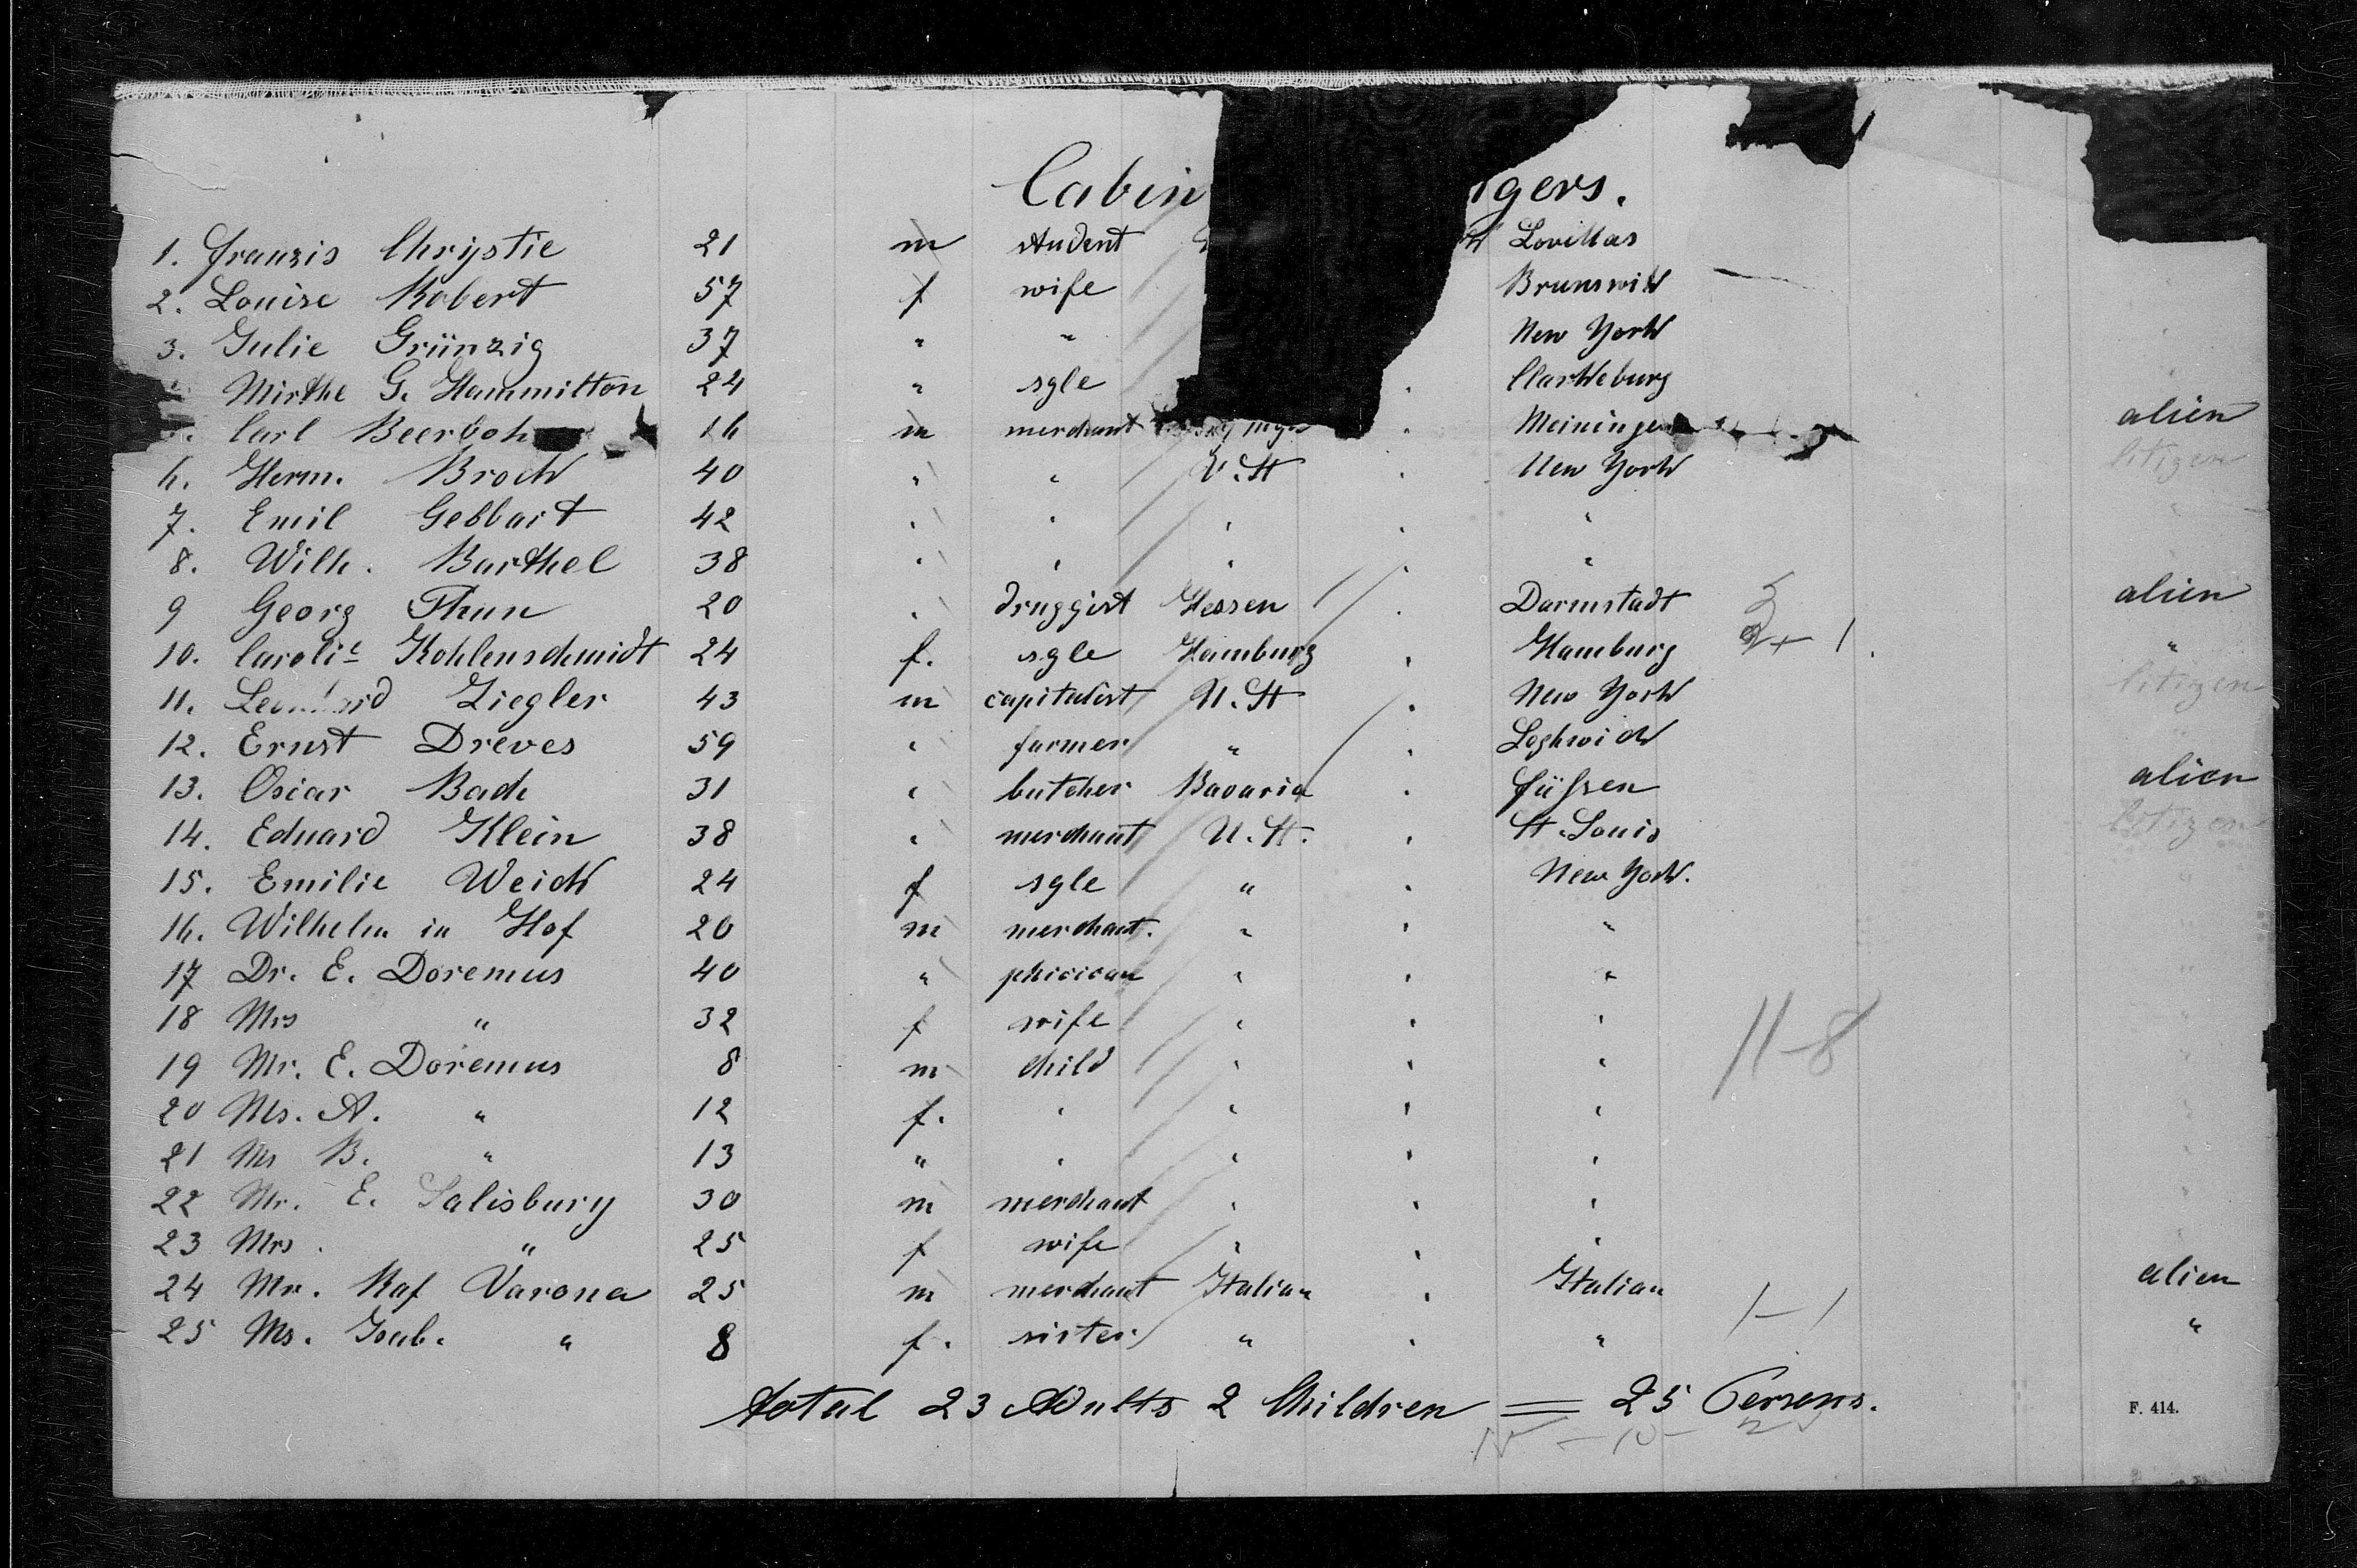 Cabin gers.
1. Franzis Chrystie 21 m student
2. Louise Robert 57 f wife Brunswick
3. Julie Grünzig 37 " " New York
Mirthe G. Hammilton 24 " sgle
Carl Beerboh 16 m merchant Meiningen alien
6. Herm. Brock 40 " " U. St " New York citizen
7. Emil Gebbart 42 " " " " " "
8. Wilh. Barthel 38 " " " " "
9 Georg Thun 20 " druggist Hessen " Darmstadt alien
10. Caroli^e Kohlenschmidt 24 f. sgle Hamburg " Hamburg 1 "
11. Leonhard Ziegler 43 m capitalist U. St " New York citizen
12. Ernst Dreves 59 " farmer " "
13. Oscar Bach 31 " butcher Bavaria " Füssen alien
14. Eduard Klein 38 " merchant U. St. " St. Louis citizen
15. Emilie Weick 24 f sgle " " New York. "
16. Wilhelm in Hof 20 m merchant. " " "
17 Dr. E. Doremus 40 " phicican " " " "
18 Mrs " 32 f wife " " "
19 Mr. E. Doremus 8 m child " " " "
20 Ms. A. " 12 f. " " " "
21 Ms B. " 13 " " " " "
22 Mr. E. Salisbury 30 m merchant " " " "
23 Mrs. " 25 f wife " " "
24 Mr. Raf Varona 25 m merchant Italian " Italian 1-1 alien
25 Ms. Isab. " 8 f. sister " " " "
11-8
total 23 Adults 2 Children = 25 Persons.
F. 414.